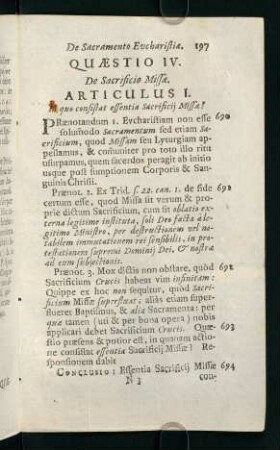 De Sacramento Eucharistiæ. 197
QUÆSTIO IV.
De Sacrificio Missæ.
ARTICULUS I.
In quo consistat essentia Sacrificij Missæ?
PRænotandum 1. Eucharistiam non esse 690
solummodo Sacramentum sed etiam Sa-
crificium, quod Missam seu Lyturgiam ap-
pellamus, & consuniter pro toto illo ritu
usurpamus, quem sacerdos peragit ab initio
usque post sumptionem Corporis & San-
guinis Christi.
Prænot. 2. Ex Trid. s. 22. can. 1. de fide 691
certum esse, quod Missa sit verum & pro-
prie dictum Sacrificium, cum sit oblatio ex-
terna legitime instituta, soli Deo facta à le-
gitimo Ministro, per destructionem vel no-
tabilem immutationem rei sensibilis, in pro-
testationem supremi Dominij Dei, & nostræ
ad eum subjectionis.
Prænot. 3. Mox dictis non obstare, quòd 692
Sacrificium Crucis habeat vim infinitam:
Quippe ex hoc non sequitur, quòd Sacri-
ficium Missæ superfluat; aliàs etiam super-
flueret Baptismus, & alia Sacramenta: per
quæ tamen (uti & per bona opera) nobis
applicari debet Sacrificium Crucis. Quæ- 693
stio præsens & potior est, in quanam actio-
ne consistat essentia Sacrificij Missæ? Re-
sponsionem dabit
CONCLUSIO: Essentia Sacrificij Missæ 694
N 3 con-